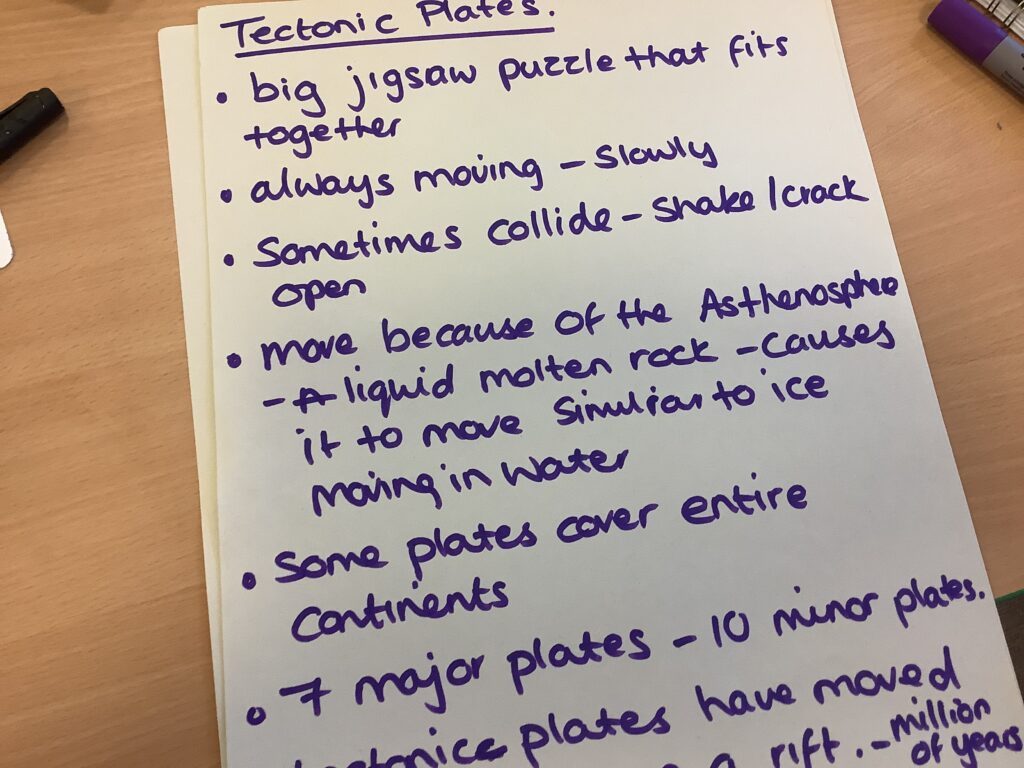 Tectonic Plates.
• big jigsaw puzzle that fits
together
• always moving - slowly
• Sometimes collide - shake / crack
open
• move because of the Asthenosphee
- A liquid molten rock - causes
it to move Similiar to ice
moving in water
• Some plates cover entire
continents
• 7 major plates - 10 minor plates.
plates have moved
a rift. - million
of years